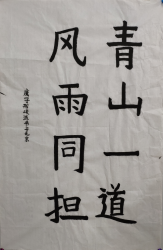 青山一道
风雨同担